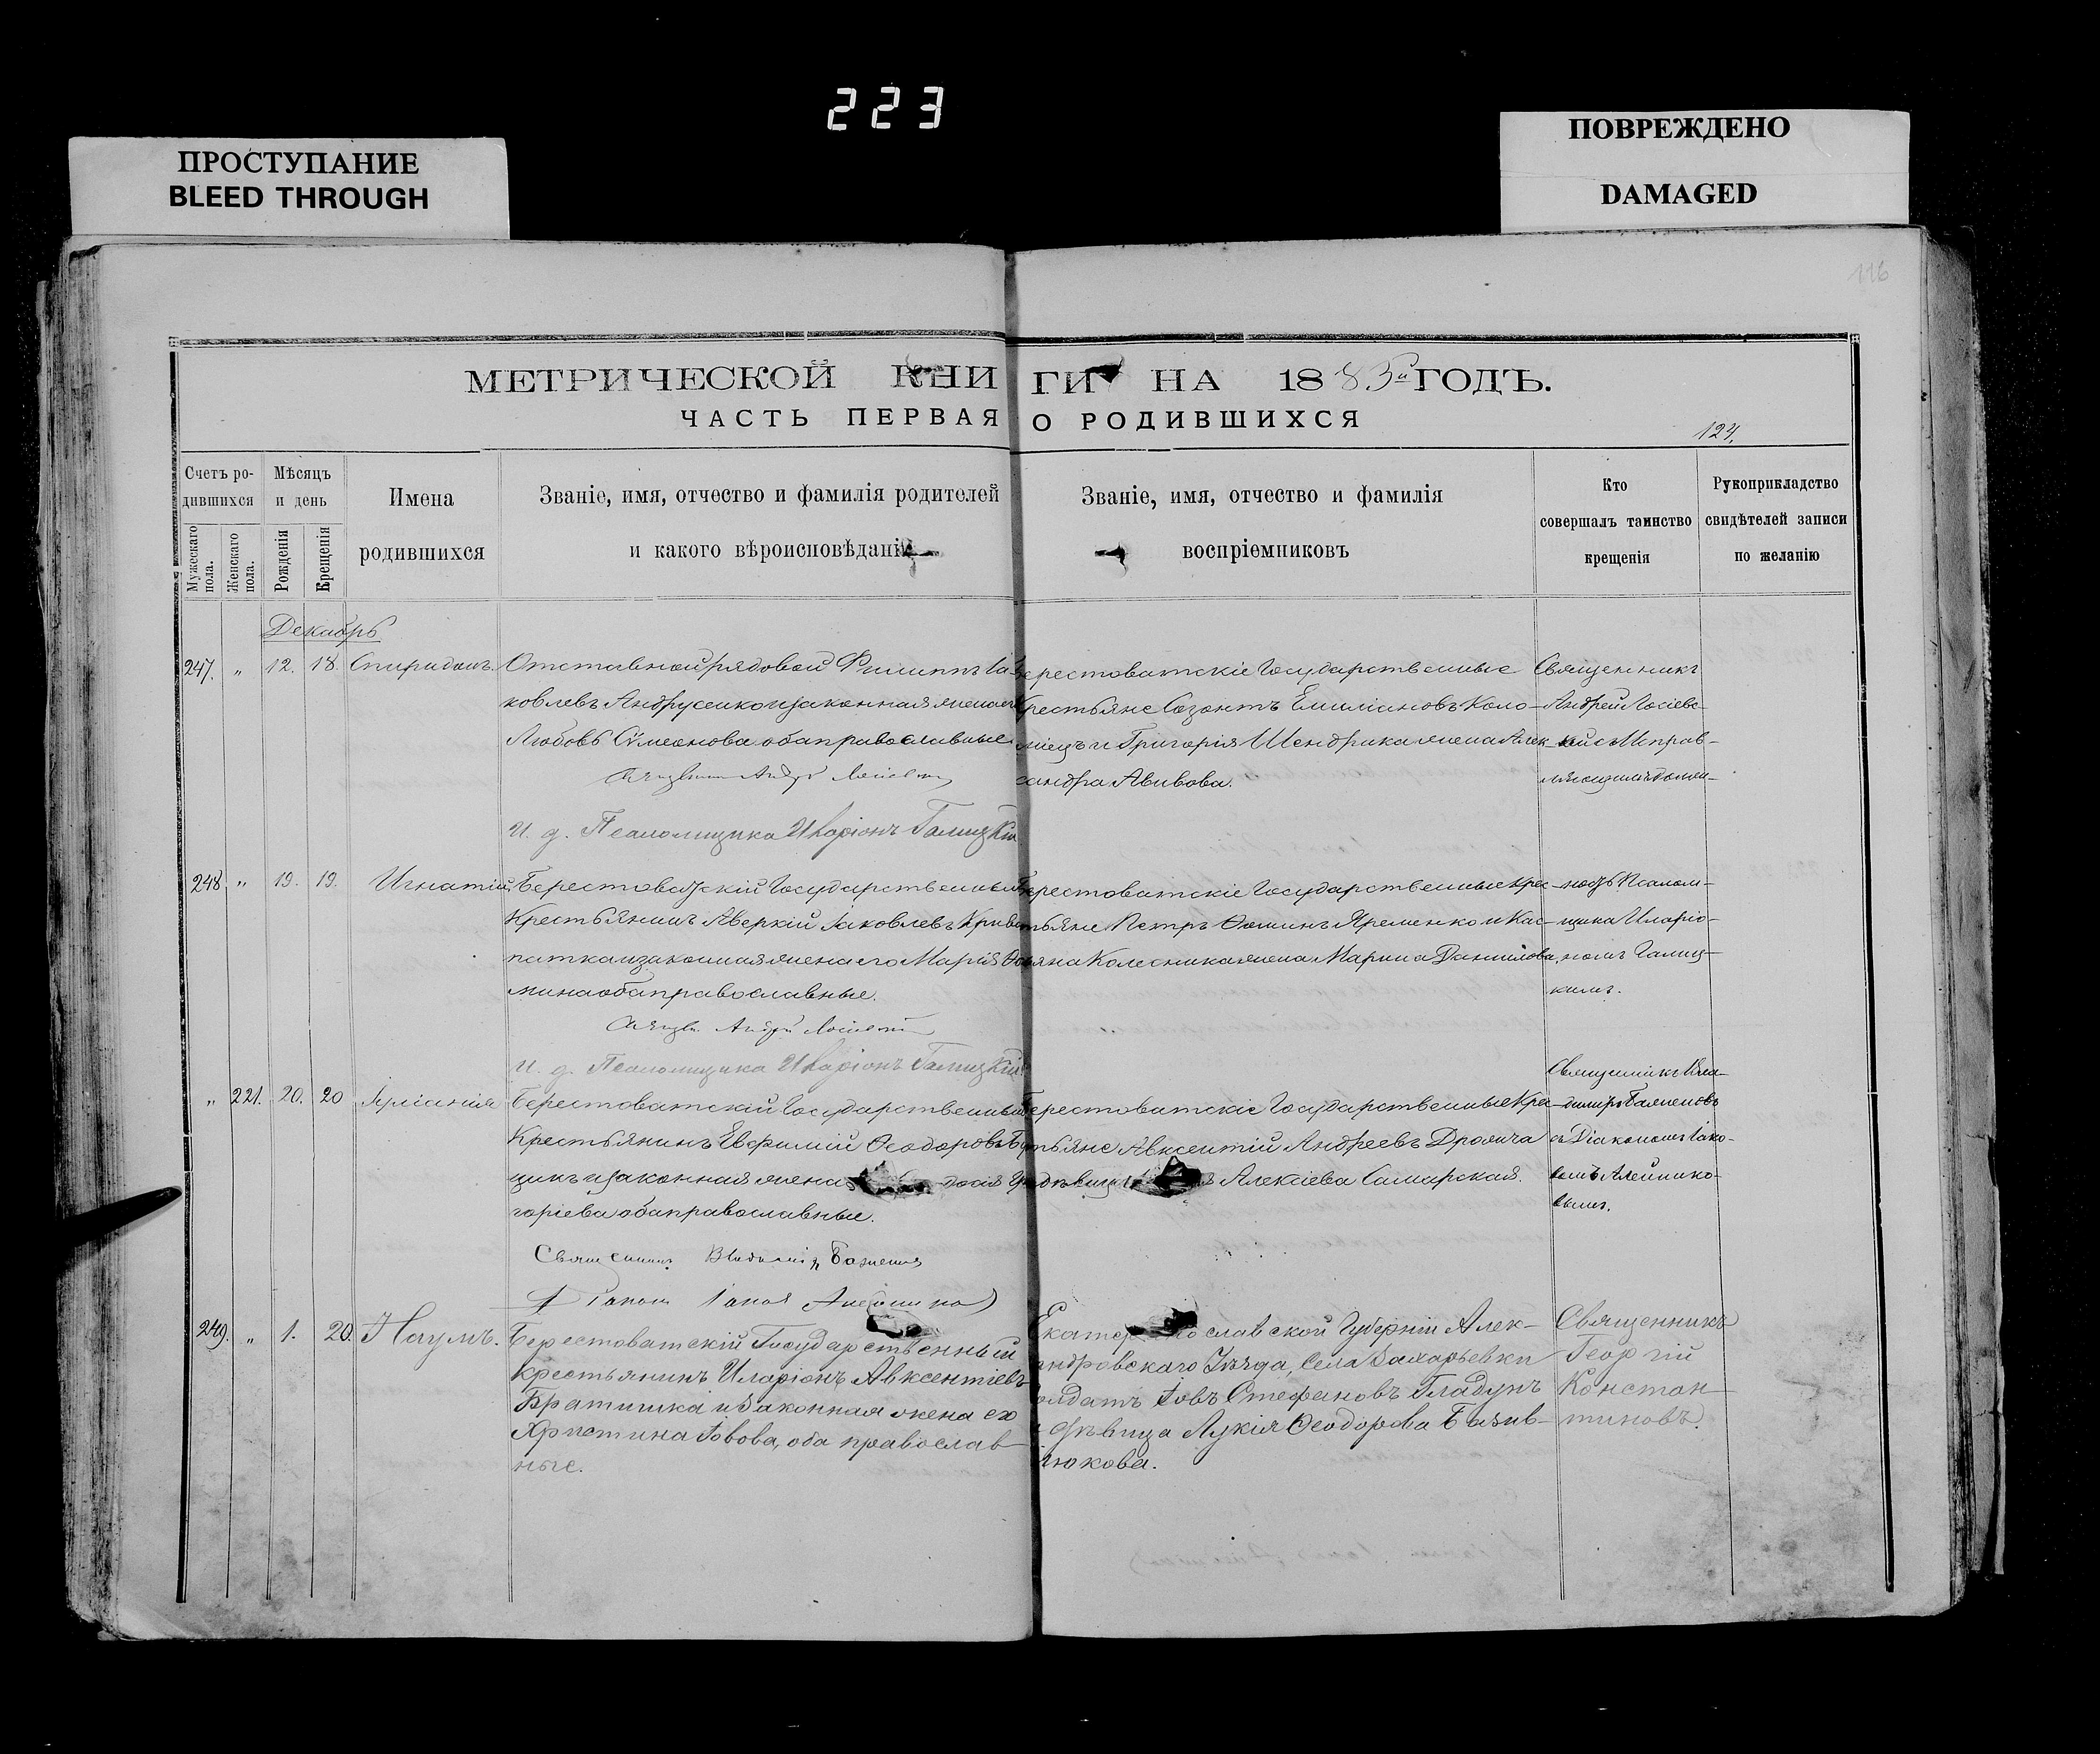 223
ПРОСТУПАНИЕ
BLEED THROUGH
ПОВРЕЖДЕНО
DAMAGED
116
МЕТРИЧЕСКОЙ КНИ ГИ НА 1885й ГОДЪ.
ЧАСТЬ ПЕРВАЯ О РОДИВШИХСЯ
124.
Счетъ ро-
дившихся
Мужескаго пола.
Женскаго пола.
Мѣсяцъ
и день
Рожденія
Крещенія
Имена
родившихся
Званіе, имя, отчество и фамилія родителей
и какого вѣроисповѣданія
Званіе, имя, отчество и фамилія
воспріемниковъ
Кто
совершалъ таинство
крещенія
Рукоприкладство
свидѣтелей записи
по желанію
Декабрь
247. " 12. 18. Спиридонъ.
Отставной рядовой Филиппъ Іа-
ковлевъ Андрусенко и законная жена его
Любовь Сѵмеонова оба православные.
И. д. Псаломщика Иларіонъ Галицкій
Берестоватскіе Государственные
Крестьяне Созонтъ Емиліановъ Коло-
міецъ и Григорія Шендрика жена Алек-
сандра Авивова.
Священникъ
Андрей Лосіевс-
кій с Исправ-
ляющимъ долж-
248. " 19. 19. Игнатій.
Берестоватскій Государственный
Крестьянинъ Аверкій Іаковлевъ Криво-
патка и законная жена его Марія Ѳо-
мина оба православные.
И. д. Псаломщика Иларіонъ Галицкій
Берестоватскіе Государственные Крес-
тьяне Петръ Ѳоминъ Яременко и Кас-
ьяна Колесника жена Марина Даніилова.
ность Псалом-
щика Иларіо-
номъ Галиц-
кимъ.
" 221. 20. 20 Іуліанія
Берестоватскій Государственный
Крестьянинъ Евфимій Ѳеодоровъ
щикъ и законная жена досія Гри-
горіева оба православные.
Священникъ Владиміръ Баженовъ
Діаконъ Іаковъ
Берестоватскіе Государственные Крес-
тьяне Авксентій Андреевъ Дрожча
и дѣвица Алексіева Самарская.
Священникъ Вла-
диміръ Баженовъ
съ Діакономъ Іако-
вомъ Алейнико-
вымъ.
249. " 1. 20. Наумъ.
Берестоватскій Государственный
крестьянинъ Иларіонъ Авксентіевъ
Братишка и законная жена его
Христина Іовова, оба православ-
ные.
Екатеринославской Губерніи Алек-
андровскаго Уѣзда, села Захарьевки
солдатъ Іовъ Стефановъ Гладунъ
и дѣвица Лукія Ѳеодорова Базив-
люкова.
Священникъ
Георгій
Констан-
тиновъ.